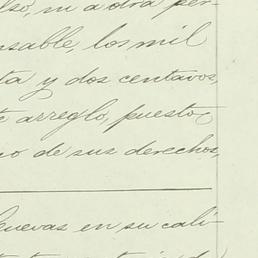 lso, ni a otra per-
nsable, los mil
ta y dos centavos,
e arreglo, puesto
no de sus derechos,
Cuevas en su cali-